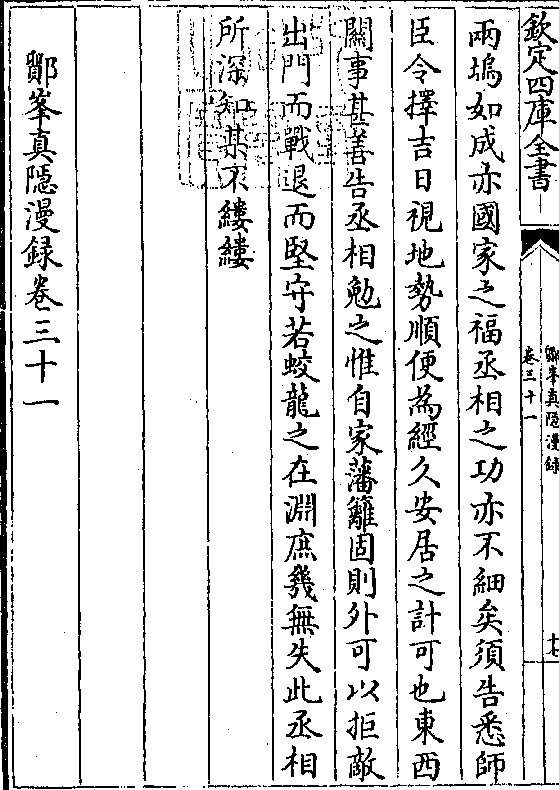 欽定四庫全書
鄮峯真隱漫録
卷三十一
十七
兩塢如成亦國家之福丞相之功亦不細矣須告悉師
臣令擇吉日視地勢順便為經久安居之計可也東西
關事甚善告丞相勉之惟自家藩籬固則外可以拒敵
出門而戰退而堅守若蛟龍之在淵庶幾無失此丞相
所深知某不縷縷
鄮峯真隱漫録卷三十一